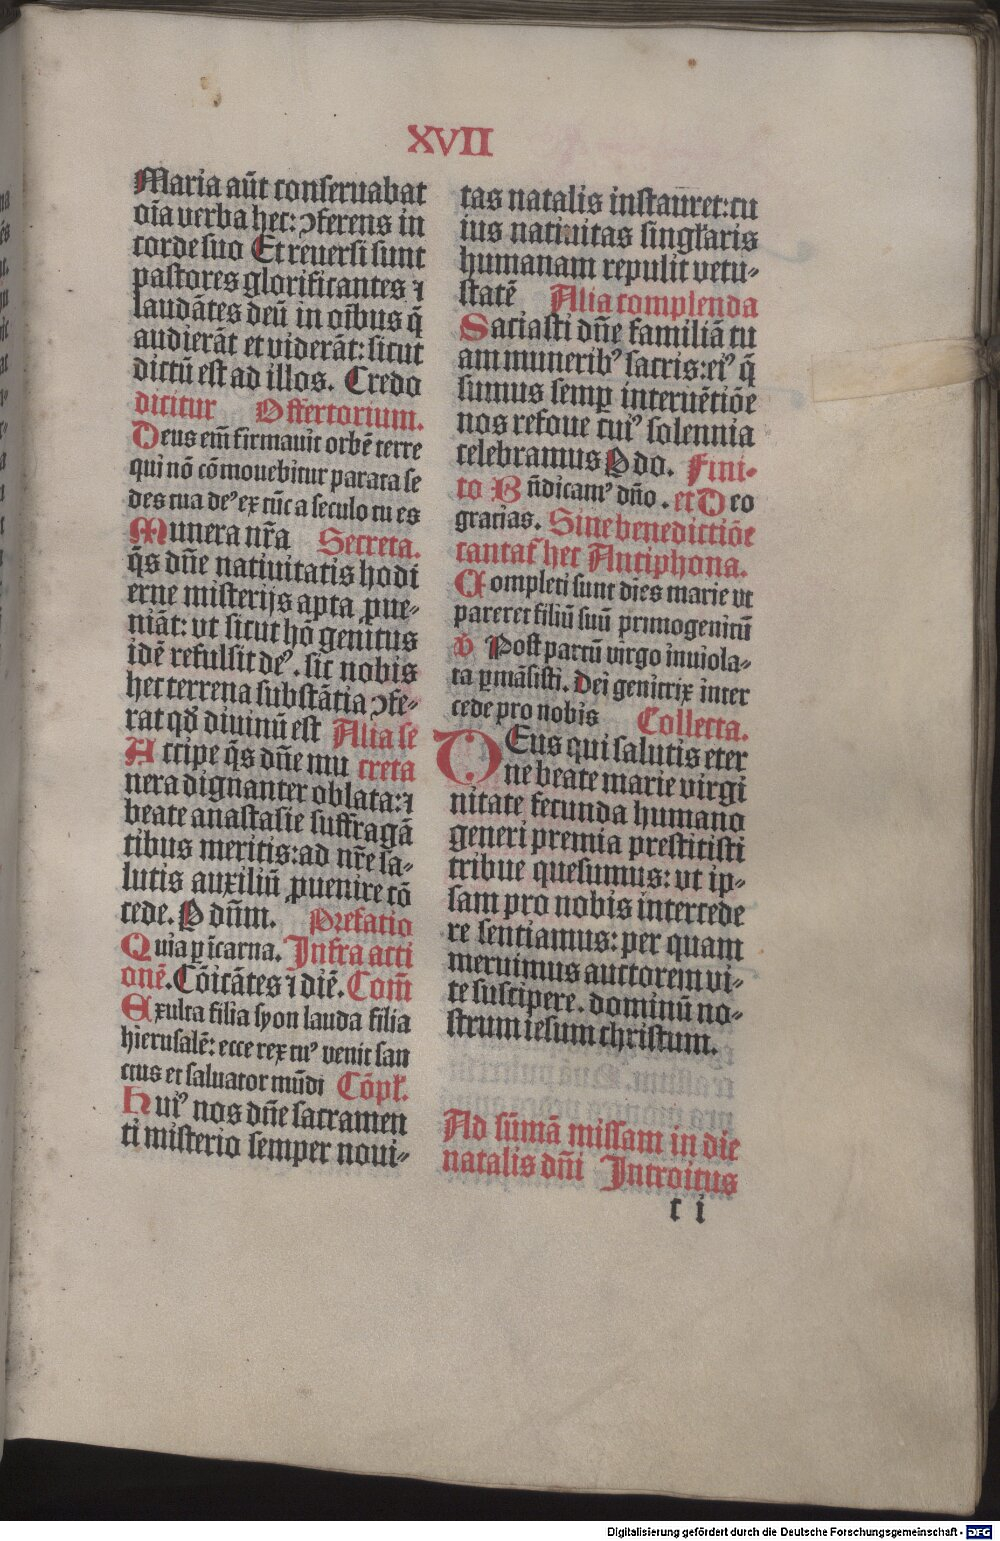 XVII
Maria aūt conseruabat
oīa verba hec: ꝯferens in
corde suo Et reuersi sunt
pastores glorificantes ⁊
laudātes deū in oībus q̄
audierāt et viderāt: sicut
dictū est ad illos. Credo
dicitur Offertorium.
Deus em̄ firmauit orbē terre
qui nō cōmouebitur parata se
des tua deꝰ ex tūc a seculo tu es
Munera nr̄a Secreta.
q̄s dn̄e natiuitatis hodi
erne misterijs apta ꝓue-
niāt: vt sicut hō genitus
idē refulsit deꝰ. sic nobis
hec terrena substātia ꝯfe-
rat qd̄ diuinū est Alia se
Accipe q̄s dn̄e mu creta
nera dignanter oblata: ⁊
beate anastasie suffragā
tibus meritis: ad nr̄e sa-
lutis auxiliū ꝓuenire cō
cede. P dn̄m. Prefatio
Quia ꝑ īcarna. Infra acti
onē. Cōicātes ⁊ diē. Com̄
Exulta filia syon lauda filia
hierusalē: ecce rex tuꝰ venit san
ctus et saluator mūdi Cōpl̄.
Huiꝰ nos dn̄e sacramen
ti misterio semper noui-
tas natalis instauret: cu
ius natiuitas singl̄aris
humanam repulit vetu-
statē Alia complenda
Saciasti dn̄e familiā tu
am muneribꝰ sacris: eiꝰ q̄
sumus semꝑ interuētiōe
nos refoue cuiꝰ solennia
celebramus P do. Fini-
to Bn̄dicamꝰ dn̄o. et Deo
gracias. Sine benedictiōe
cantat̄ hec Antiphona.
Completi sunt dies marie vt
pareret filiū suū primogenitū
v Post partū virgo inuiola-
ta ꝑmāsisti. Dei genitrix inter
cede pro nobis Collecta.
DEus qui salutis eter
ne beate marie virgi
nitate fecunda humano
generi premia prestitisti
tribue quesumus: vt ip-
sam pro nobis intercede
re sentiamus: per quam
meruimus auctorem vi-
te suscipere. dominū no-
strum iesum christum.
Ad sūmā missam in die
natalis dn̄i Introitus
c i
Digitalisierung gefördert durch die Deutsche Forschungsgemeinschaft - DFG